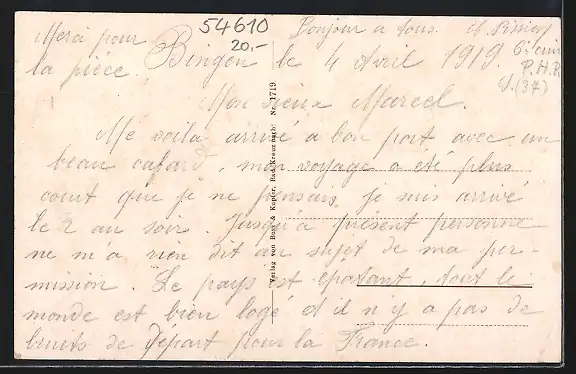 54610
20.-
Merci pour
la pièce.
Bonjour a tous.
Bingen le 4 Avril 1919.
P.H.R.
(37)
Mon vieux Marcel.
Me voila arrivé a bon port avec un
beau cafard, mon voyage a été plus
court que je ne pensais, je suis arrivé
le 2 au soir. Jusqu'a présent personne
ne m'a rien dit au sujet de ma per-
mission. Le pays est épatant, tout le
monde est bien logé et il n'y a pas de
bruits de départ pour la France.
Verlag von Bost & Küpfer, Bad Kreuznach: Nr. 1719.